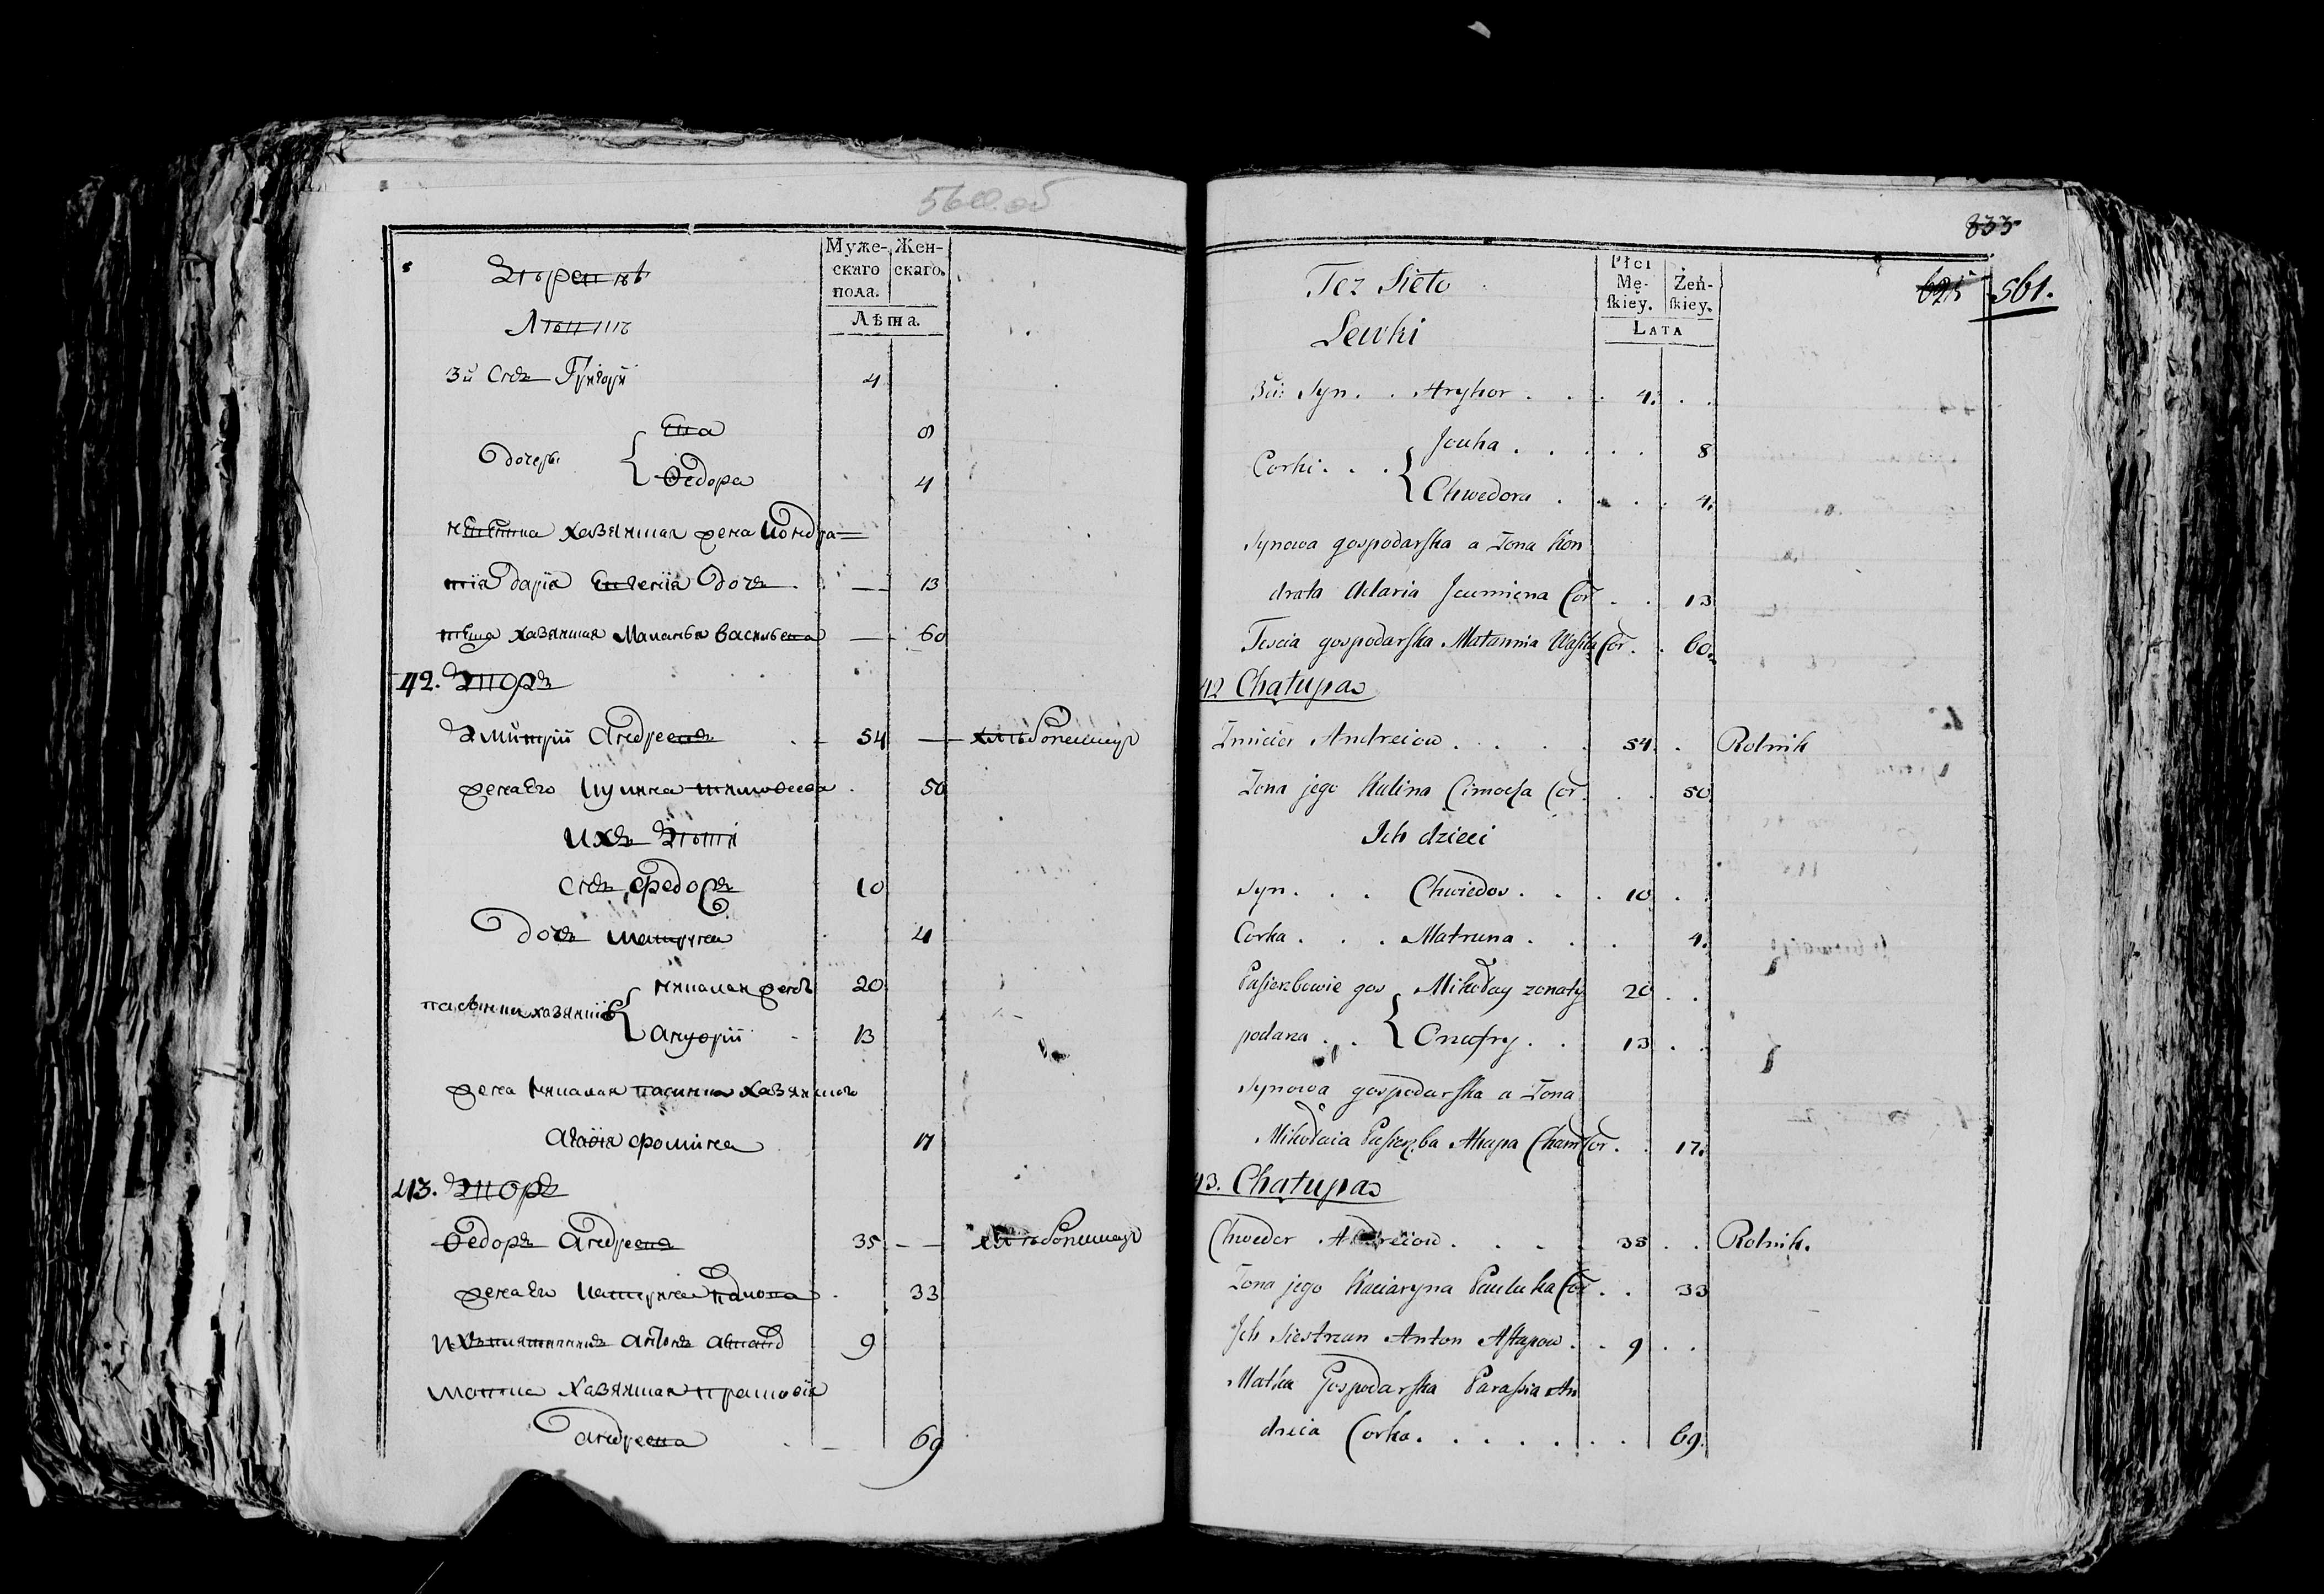 560.об
Муже-
скаго
пола.
Жен-
скаго.
Лѣта.
3й Снъ Григорій 4
Ева 8
Дочери
Федора 4
невестка хазяйшая жена Кондра=
тія Дарія Евгенія дочь — 13
теща хазяйшая Маланья васильева — 60
42. Дворъ
Дмитрій Андреевъ 54 — хлѣбопашецъ
жена его Кулина тимофеева 50
ихъ дѣти
Снъ Федоръ 10
Дочь матруна 4
николай женатъ 20
пасынки хазяйшіе
Ануфрій 13
жена николая пасынка хазяйшого
Агафія фомина 17
43. Дворъ
Федоръ Андреевъ 35 — хлѣбопашецъ
жена его катерина павлова 33
ихъ племянникъ Антонъ астапо 9
матка хазяйшая прасковія
андреева — 69
833
625 561.
Też Sieło
Lewki
Płci
Mę-
skiey.
Żeń-
skiey.
Lata
3ci: Syn . . Hryhor . . . 4. . .
Jouha . . . . . 8
Corki . . .
Chwedora . . . . 4.
Synowa gospodarska a Zona Kon
drata Adaria Jaumiena Cor . . 13
Tescia gospodarska Małannia Waśka Cor . . 60.
42 Chałupa
Zmicier Andreiow . . . . 54. . Rolnik
Zona jego Kulina Cimocha Cor . . . 50
Ich dzieci
Syn . . . Chwiedor . . . 10 .
Corka . . . Matruna . . . 4.
Pasierzbowie gos Mikołay zonaty 20 . .
podara . . Onufry . . 13 . .
Synowa gospodarska a Zona
Mikołaia Pasierzba Ahapa Cham Cor . . 17.
43. Chałupa
Chwedor Andreiow . . . . 35 . . Rolnik.
Zona jego Kaciaryna Pauluka Cor . . 33
Ich siestrzan Anton Astapow . . 9 . .
Matka Gospodarska Parasia An
dreia Corka . . . . . . . 69.